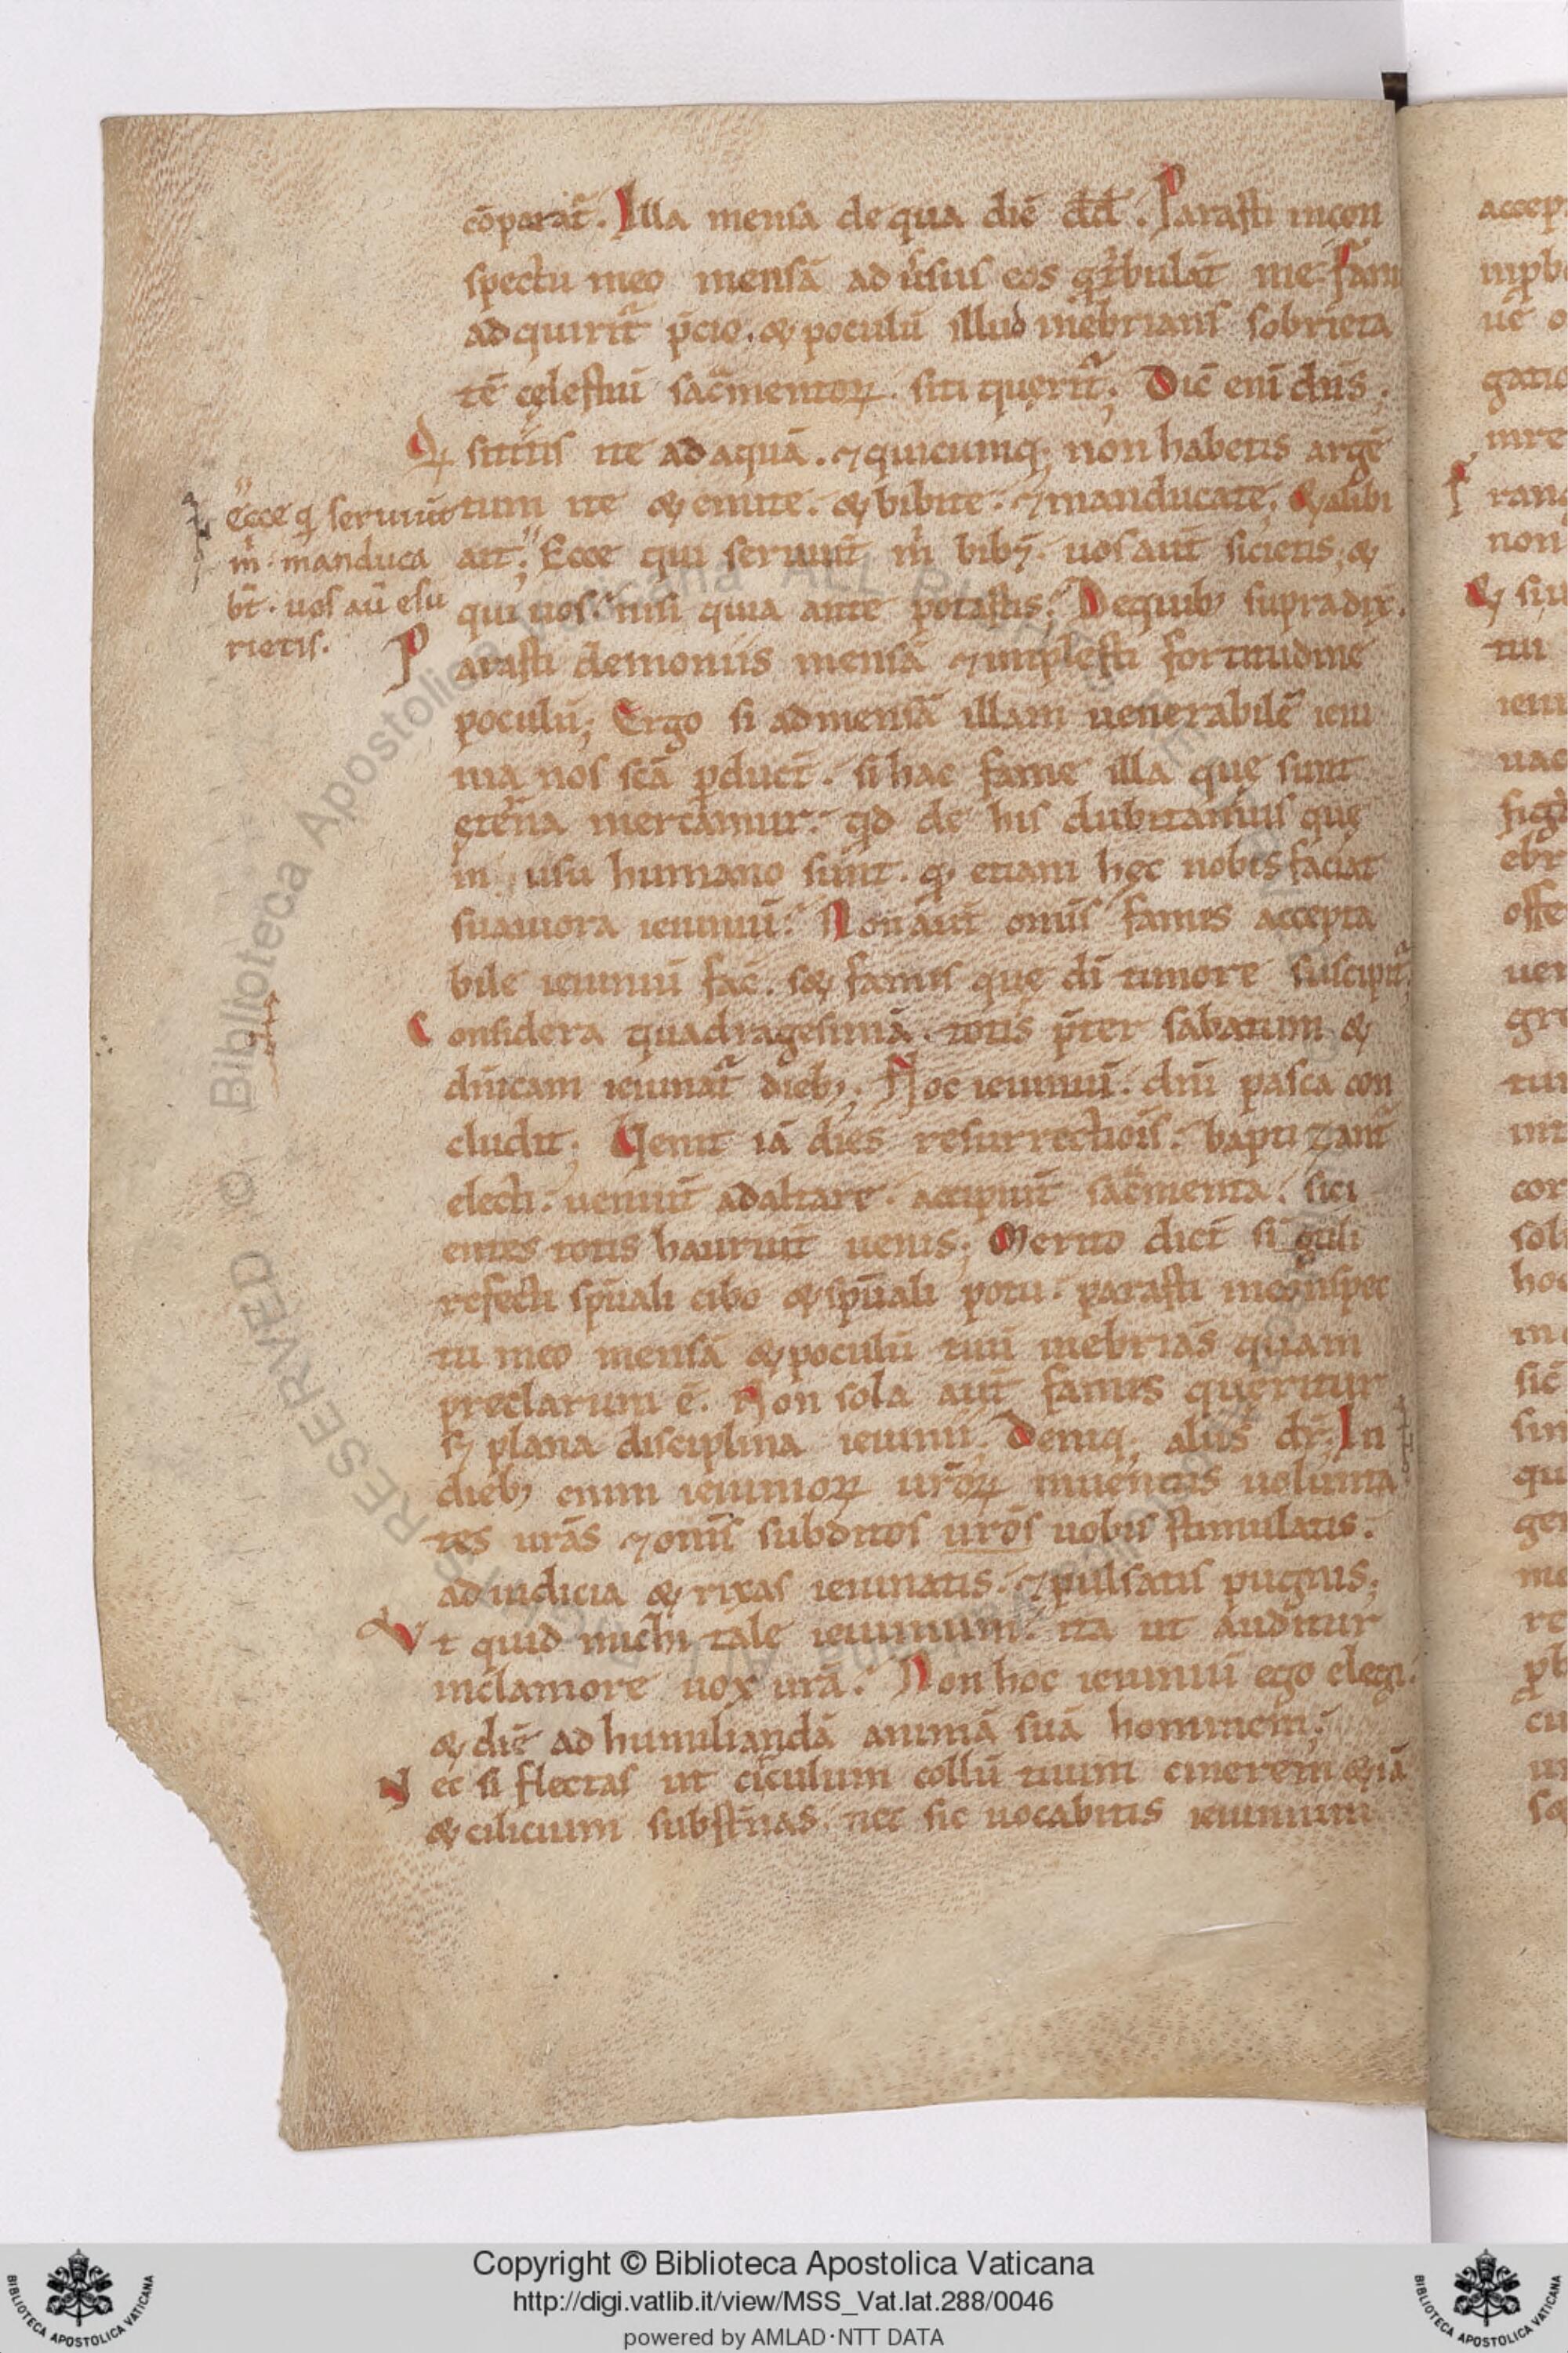 cōparat᷑. Illa mensa de qua dic̄ dd̄. Parasti incon
spectu meo mensā aduersus eos q᷑tribulāt me. Fam
adquirit᷑ p̄cio. & poculū illud inebrians sobrieta
tē cęlestiū sac̄mentoꝝ. siti quęrit᷑; Dic̄ enī dn̄s;
Qͥ sititis ite ad aquā. ⁊ quicumq; non habetis argē
tum ite & emite. & bibite. ⁊ manducate; & alibi
ait; Ecce qui seruiūt m̄ bibēt. uos aūt sicietis; &
qui uos. nisi quia ante potastis; De quib; supradix̄.
Parasti demoniis mensā ⁊ implesti fortitudine
poculū; Ergo si ad mensā illam uenerabilē ieiu
nia nos sc̄a p̄duct̄. si hac fame illa quę sunt
ęt̄na mercamur. qd de his dubitamus quę
in usu humano sunt. qđ etiam hęc nobis faciat
suauiora ieiuniū. Non aūt omīs famis accepta
bile ieiuniū fac̄. s& famis quę dī timore suscipit᷑;
Considera quadragesimā. totis p̄ter sabatum &
dn̄icam ieiunat᷑ dieb;; Hoc ieiuniū. dn̄i pasca con
cludit; Uenit iā dies resurrectiōis. baptizant᷑
electi. ueniūt ad altare. accipiūt sac̄menta. sici
entes totis hauriūt uenis; Merito dic̄t singuli
refecti sp̄uali cibo & sp̄uali potu. parasti inconspec
tu meo mensā & poculū tuū inebrians quam
preclarum ē. Non sola aūt famis quęritur
s; plana disciplina ieiunii; Deniq; alius dr̄; In
dieb; enim ieiunioꝝ ur̄oꝝ inuenitis uolunta
tes ur̄as ⁊ om̄s subditos ur̄os uobis stimulatis.
ad iudicia & rixas ieiunatis. ⁊ pulsatis pugnis;
Vt quid michi tale ieiunium. ita ut auditur
inclamore uox ur̄a. Non hoc ieiuniū ego elegi.
& diē ad humiliandā animā suā hominem;
Nec si flectas ut circulum collū tuum cinerem &iā
& cilicium subst̄nas. nec sic uocabitis ieiunium
Ecce qͥ seruiūt
m̄ manduca
bt̄. uos aū esu
rietis.
Copyright © Biblioteca Apostolica Vaticana
http://digi.vatlib.it/view/MSS_Vat.lat.288/0046
powered by AMLAD·NTT DATA